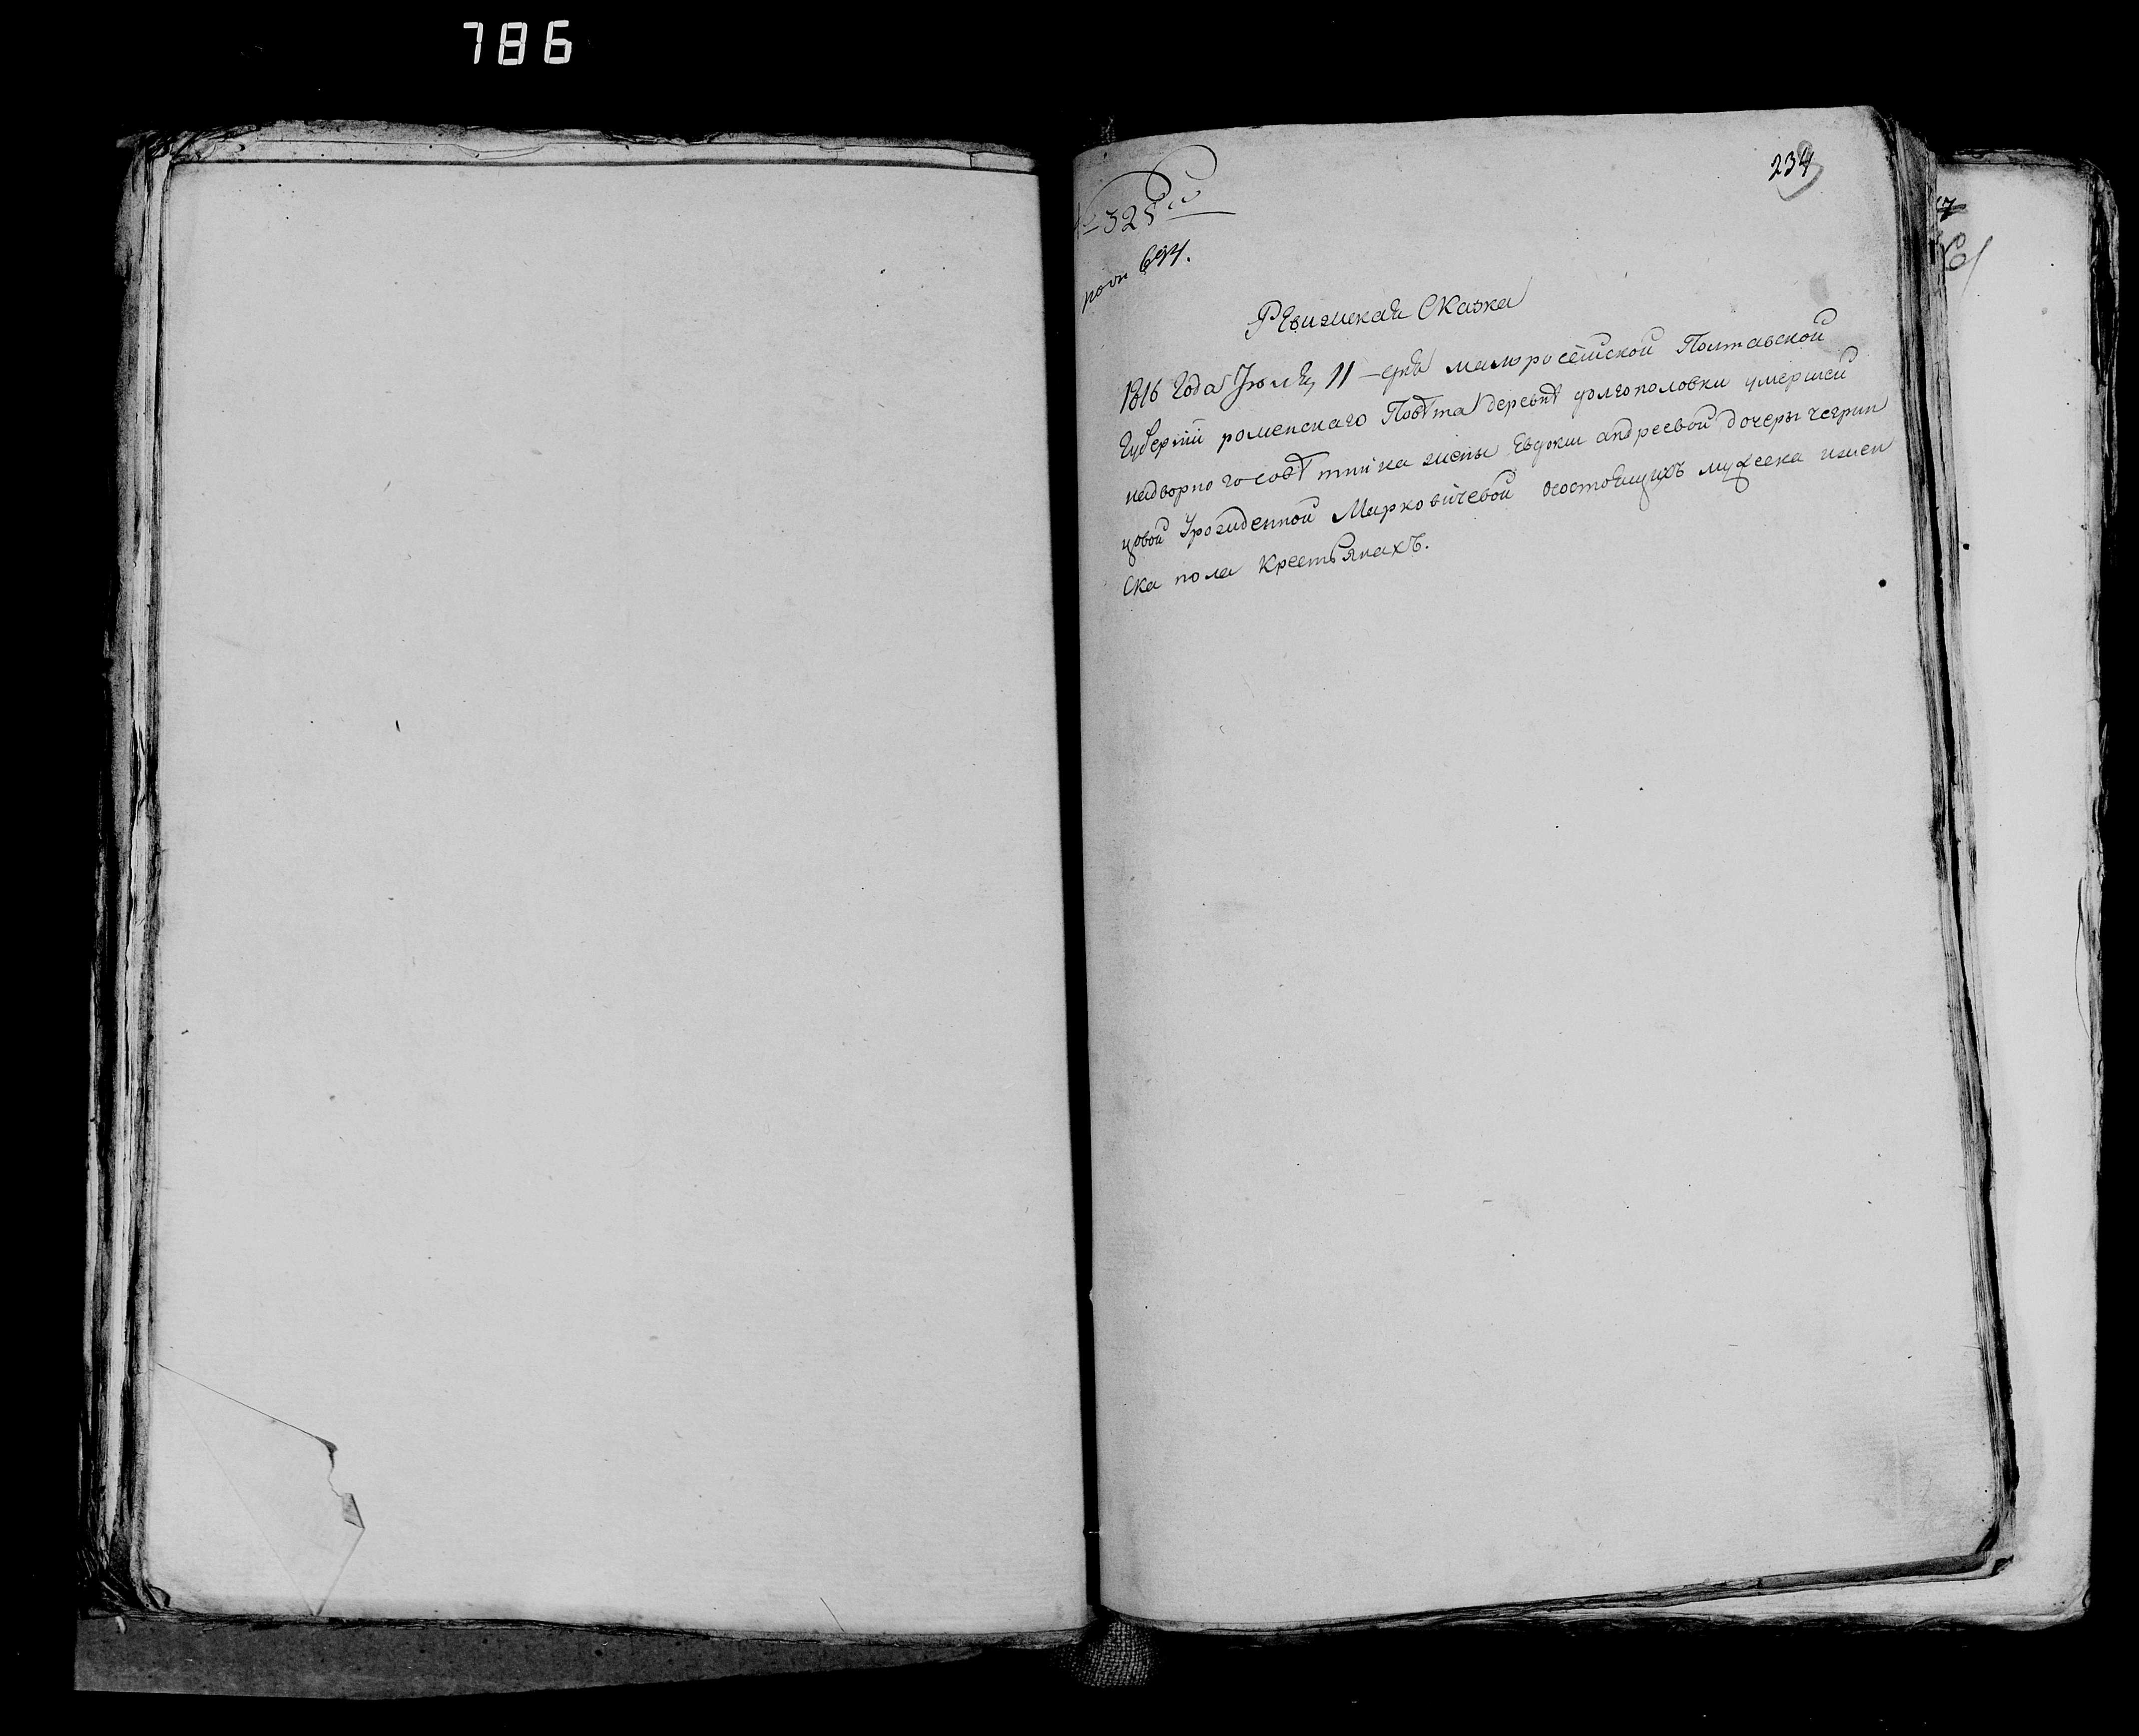 786
234
325
694.
Ревизская Сказка
1816 Года Июля 11 дня малоросейской Полтавской
Губерний роменскаго Повѣта деревнѣ долгополовки умершей
надворного совѣтника жены Евдокии андреевой дочеры чегрин
цовой Урожденной Марковичевой осостоящихъ мужеска ижен
ска пола Крестьянахъ.